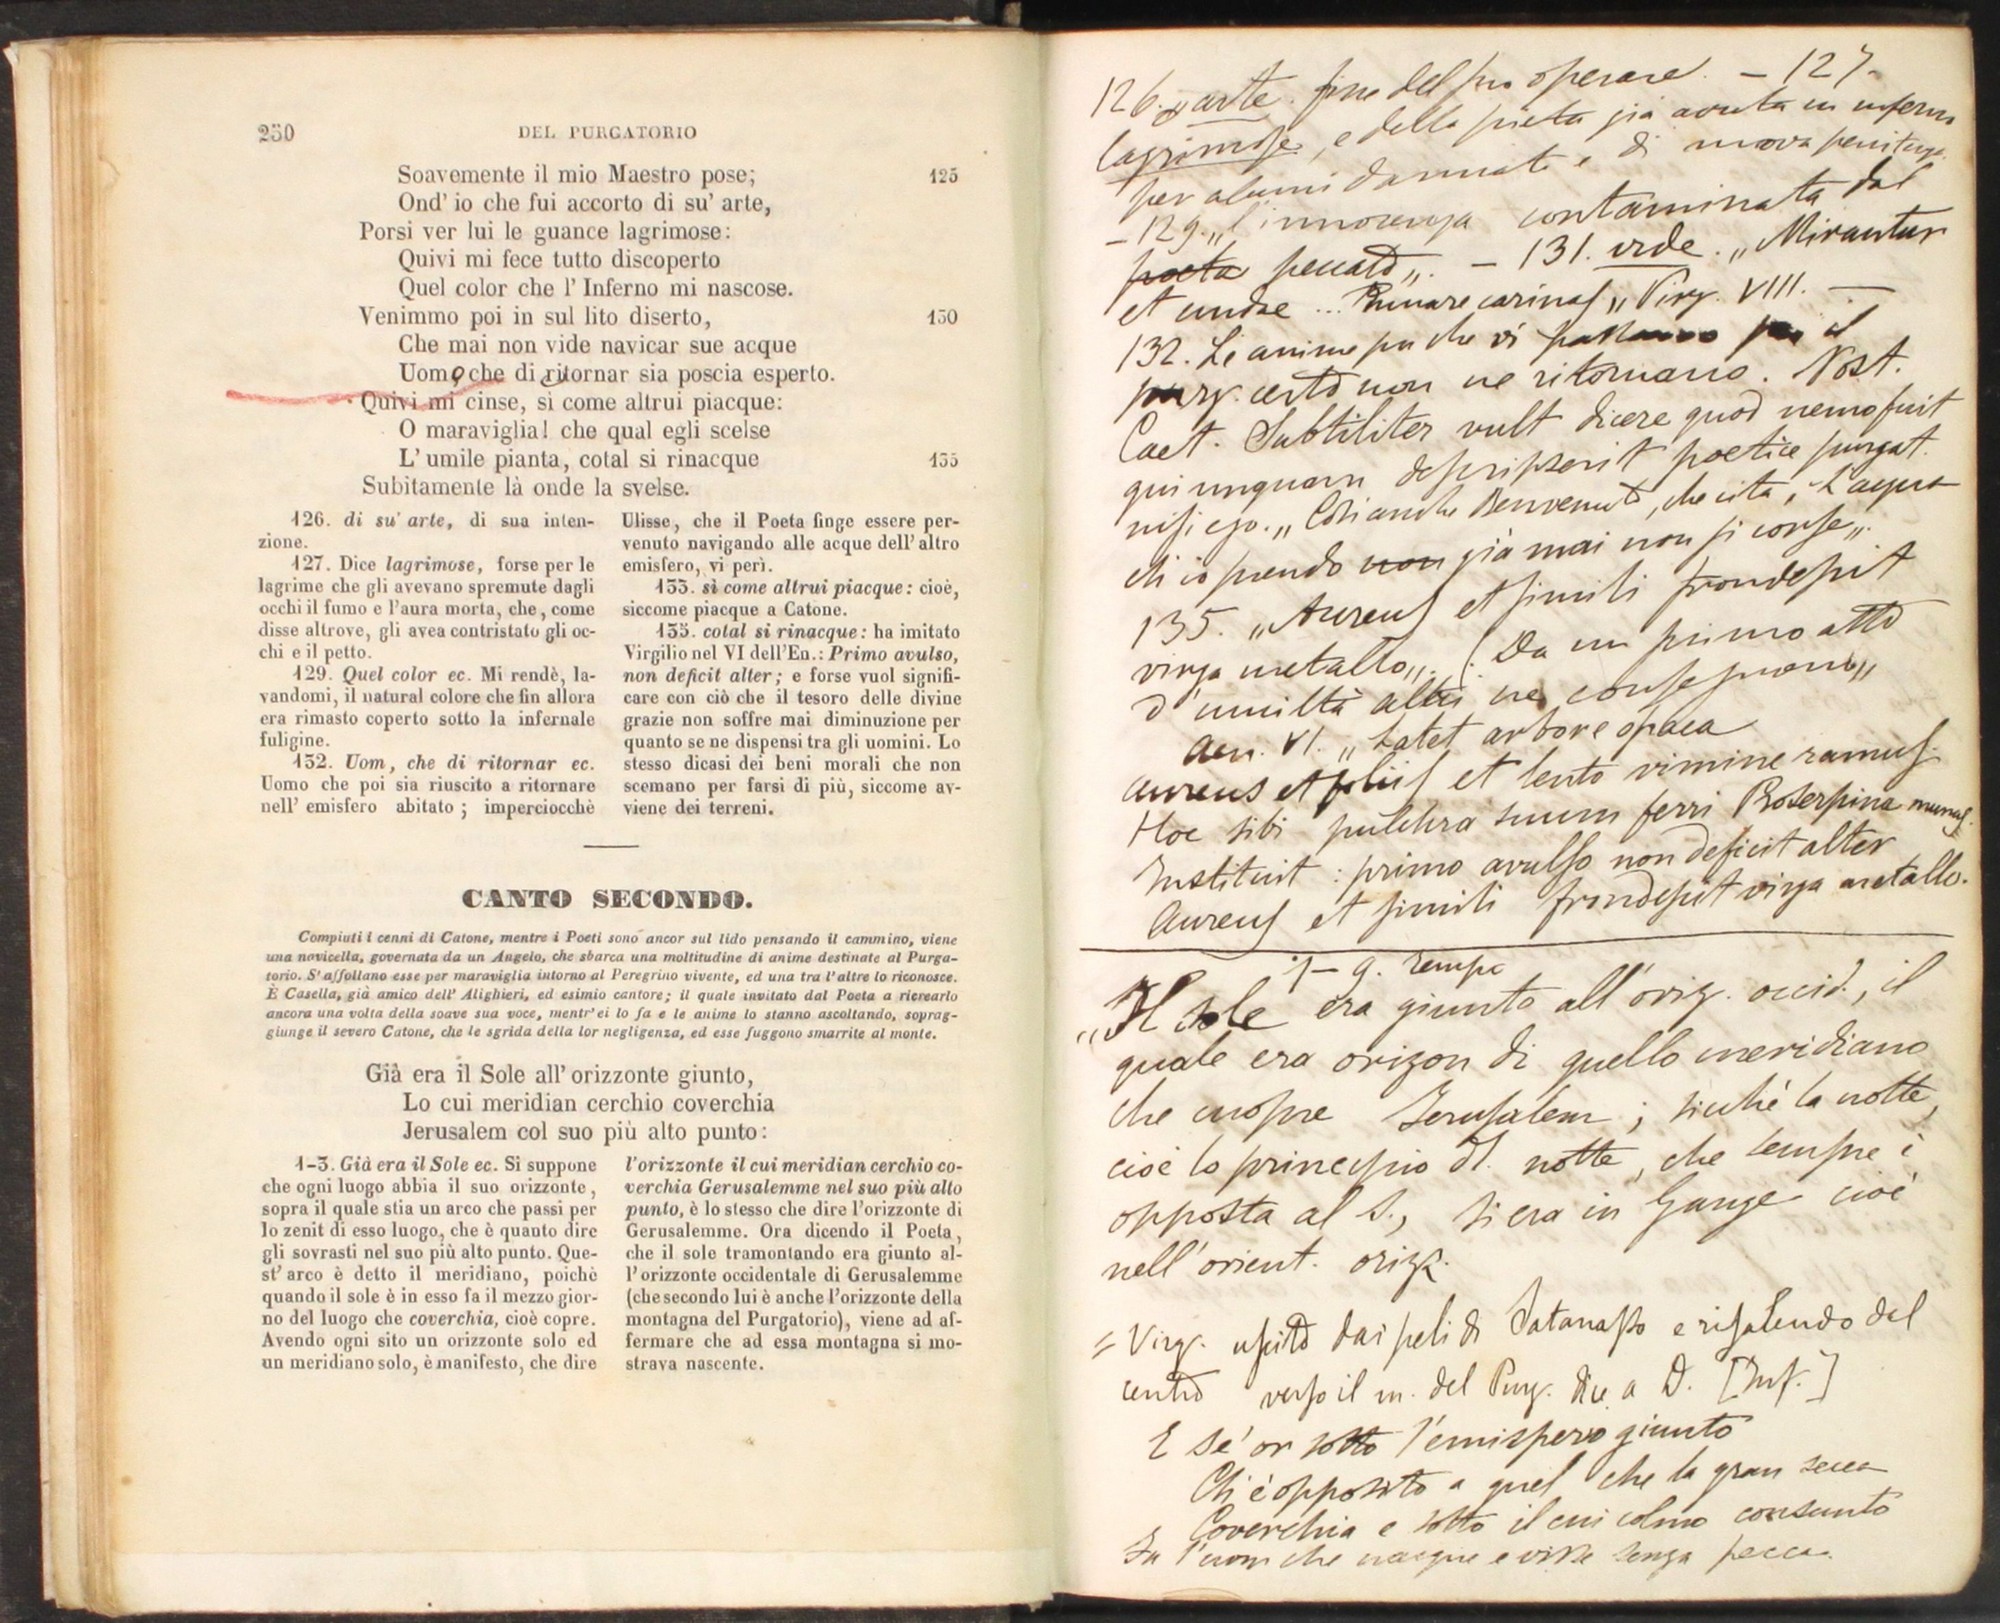 250
DEL PURGATORIO
Soavemente il mio Maestro pose; 125
Ond' io che fui accorto di su' arte,
Porsi ver lui le guance lagrimose:
Quivi mi fece tutto discoperto
Quel color che l' Inferno mi nascose.
Venimmo poi in sul lito diserto, 130
Che mai non vide navicar sue acque
Uomo che di ritornar sia poscia esperto.
Quivi mi cinse, sì come altrui piacque:
O maraviglia! che qual egli scelse
L' umile pianta, cotal si rinacque 135
Subitamente là onde la svelse.
126. di su' arte, di sua inten-
zione.
127. Dice lagrimose, forse per le
lagrime che gli avevano spremute dagli
occhi il fumo e l'aura morta, che, come
disse altrove, gli avea contristato gli oc-
chi e il petto.
129. Quel color ec. Mi rendè, la-
vandomi, il natural colore che fin allora
era rimasto coperto sotto la infernale
fuligine.
132. Uom, che di ritornar ec.
Uomo che poi sia riuscito a ritornare
nell' emisfero abitato; imperciocchè
Ulisse, che il Poeta finge essere per-
venuto navigando alle acque dell' altro
emisfero, vi perì.
133. sì come altrui piacque: cioè,
siccome piacque a Catone.
135. cotal si rinacque: ha imitato
Virgilio nel VI dell'En.: Primo avulso,
non deficit alter; e forse vuol signifi-
care con ciò che il tesoro delle divine
grazie non soffre mai diminuzione per
quanto se ne dispensi tra gli uomini. Lo
stesso dicasi dei beni morali che non
scemano per farsi di più, siccome av-
viene dei terreni.
CANTO SECONDO.
Compiuti i cenni di Catone, mentre i Poeti sono ancor sul lido pensando il cammino, viene
una navicella, governata da un Angelo, che sbarca una moltitudine di anime destinate al Purga-
torio. S' affollano esse per maraviglia intorno al Peregrino vivente, ed una tra l' altre lo riconosce.
È Casella, già amico dell' Alighieri, ed esimio cantore; il quale invitato dal Poeta a ricrearlo
ancora una volta della soave sua voce, mentr' ei lo fa e le anime lo stanno ascoltando, soprag-
giunge il severo Catone, che le sgrida della lor negligenza, ed esse fuggono smarrite al monte.
Già era il Sole all' orizzonte giunto,
Lo cui meridian cerchio coverchia
Jerusalem col suo più alto punto:
1-3. Già era il Sole ec. Si suppone
che ogni luogo abbia il suo orizzonte,
sopra il quale stia un arco che passi per
lo zenit di esso luogo, che è quanto dire
gli sovrasti nel suo più alto punto. Que-
st' arco è detto il meridiano, poichè
quando il sole è in esso fa il mezzo gior-
no del luogo che coverchia, cioè copre.
Avendo ogni sito un orizzonte solo ed
un meridiano solo, è manifesto, che dire
l'orizzonte il cui meridian cerchio co-
verchia Gerusalemme nel suo più alto
punto, è lo stesso che dire l'orizzonte di
Gerusalemme. Ora dicendo il Poeta,
che il sole tramontando era giunto al-
l'orizzonte occidentale di Gerusalemme
(che secondo lui è anche l'orizzonte della
montagna del Purgatorio), viene ad af-
fermare che ad essa montagna si mo-
strava nascente.
126. arte. fine del suo operare. – 127.
lagrimose, e della pieta già avuta in inferno
per alcuni dannati e di nuova penitenza.
– 129. „l'innocenza contaminata dal
poeta peccato„. – 131. vide. „Mirantur
et undae ... carinas„ Virg. VIII. —
132. Le anime pur che vi il
purg. certo non ne ritornano. Post.
Caet. Subtiliter vult dicere quod nemo fuit
qui unquam descripserit poetice purgat.
nisi ego.„ Così anche Benvenuto, che cita, „L'acqua
ch'io prendo non già mai non si corse„.
135. „Aureus et simili frondescit
virga metallo„. (Da un primo atto
d'umiltà altri ne conseguono„
Aen. VI. „Latet arbore opaca
aureus et foliis et lento vimine ramus.
Hoc sibi pulchra suum ferri Proserpina munus.
Instituit: primo avulso non deficit alter
Aureus et simili frondescit virga metallo.
1–9. tempo
„Il sole era giunto all'oriz. occid., il
quale era orizon di quello meridiano
che cuopre Jerusalem; sicchè la notte,
cioè lo principio d. notte, che sempre è
opposta al S., si era in Gange cioè
nell'orient. orizz.
= Virg. uscito dai peli di Satanasso e risalendo dal
centro verso il m. del Purg. dice a D. [Inf.]
E se' or sotto l'emispero giunto
Ch'è opposito a quel che la gran secca
Coverchia e sotto il cui colmo consunto
Fu l'uom che nacque e visse senza pecca.